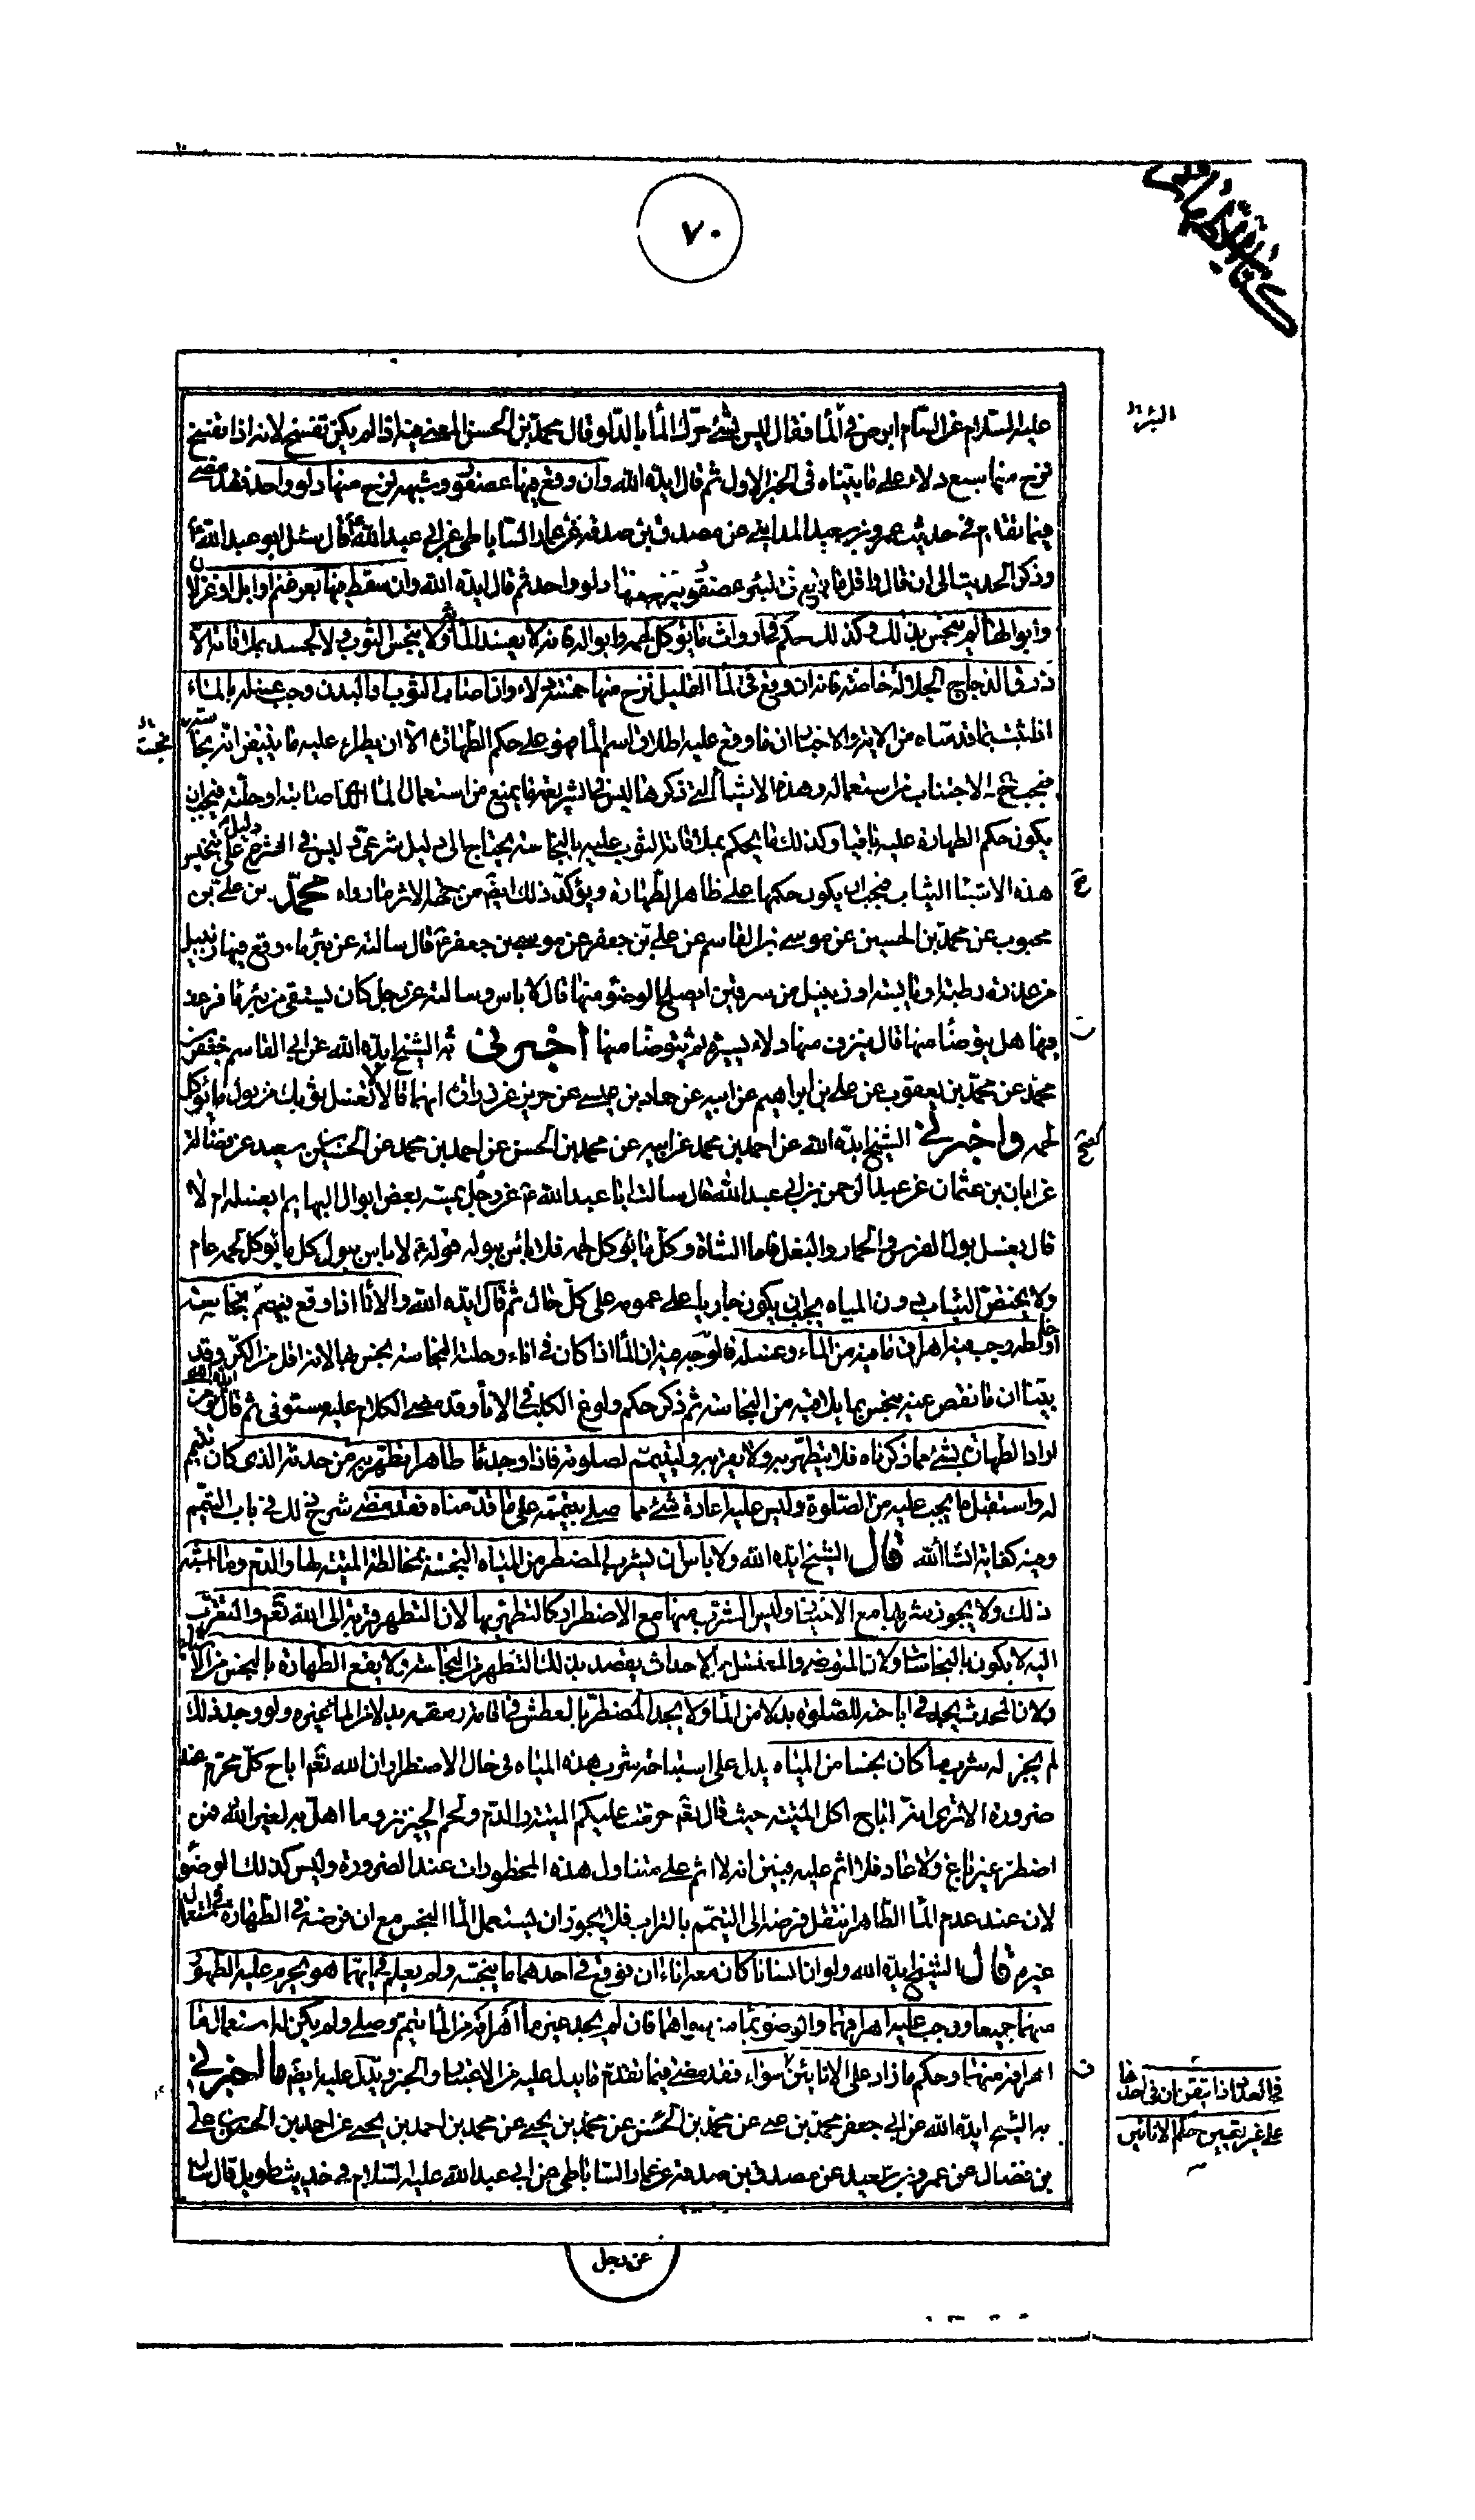 ٧٠
كتاب الطهارة
البئر
عليه السلام عن السام ابرص في الماء فقال ليس بشئ حرك الماء بالدلو قال محمد بن الحسن المعنى فيه اذا لم يكن تفسخ لانه اذا تفسخ
نزح منها سبع دلاء على ما بيناه في الخبر الاول ثم قال ايده الله وان وقع فيها عصفور وشبهه نزح منها دلو واحد فقد مضى
فيما تقدم في حديث عمرو بن سعيد المدايني عن مصدق بن صدقة عن عمار الساباطي عن ابي عبد الله ع قال سئل ابو عبد الله ع
وذكر الحديث الى ان قال واقل ما يقع في البئر عصفور ينزح منها دلو واحد ثم قال ايده الله وان سقط منها بعر غنم او ابل او غزلان
وابوالها لم ينجس بذلك وكذلك حكم ارواث ما يؤكل لحمه وابواله فانه لا يفسد الماء ولا ينجس الثوب ولا الجسد بملاقاته الا
ذرق الدجاج الجلالة خاصة فانه ان وقع في الماء القليل نزح منها خمس دلاء وان اصاب الثوب والبدن وجب غسله بالماء
اذا ثبت بما قدمناه من الاية والاخبار ان ما وقع عليه اطلاق اسم الماء فهو على حكم الطهارة الا ان يطرء عليه ما يتيقن انه نجاسة
فيجب ح الاجتناب من استعماله وهذه الاشياء التي ذكرها ليس في الشريعة ما يمنع من استعمال الماء اذا اصابته او حلته فيجب ان
يكون حكم الطهارة عليه باقيا وكذلك ما يحكم بملاقاته الثوب عليه بالنجاسة يحتاج الى دليل شرعي وليس في الشرع دليل على تنجيس
هذه الاشياء الثياب فيجب ان يكون حكمها على ظاهر الطهارة ويؤكد ذلك ايضا من جهة الاثر ما رواه محمد بن علي بن
محبوب عن محمد بن الحسين عن موسى بن القاسم عن علي بن جعفر عن موسى بن جعفر ع قال سالته عن بئر ماء وقع فيها زنبيل
من عذرة رطبة او يابسة او زنبيل من سرقين ايصلح الوضوء منها قال لا باس وسالته عن رجل كان يستقي من بئر ماء فرعف
فيها هل يتوضأ منها قال ينزف منها دلاء يسيرة ثم يتوضأ منها اخبرني به الشيخ ايده الله عن ابي القاسم جعفر بن
محمد عن محمد بن يعقوب عن علي بن ابراهيم عن ابيه عن حماد بن عيسى عن حريز عن زرارة انهما قالا لا تغسل ثوبك من بول ما يؤكل
لحمه واخبرني الشيخ ايده الله عن احمد بن محمد عن ابيه عن محمد بن الحسن عن احمد بن محمد عن الحسين بن سعيد عن فضالة
عن ابان بن عثمان عن عبد الرحمن بن ابي عبد الله قال سالت ابا عبد الله ع عن رجل يمسه بعض ابوال البهايم ايغسله ام لا
قال يغسل بول الفرس والحمار والبغل فاما الشاة وكل ما يؤكل لحمه فلا باس ببوله قوله ع لا باس ببول كل ما يؤكل لحمه عام
ولا يختص الثياب دون المياه يجب ان يكون جاريا على عمومه على كل حال ثم قال ايده الله والاناء اذا وقع فيه نجاسة
او خالطه وجب اهراق ما فيه من الماء وغسله فالوجه فيه ان الماء اذا كان في اناء وحلته النجاسة نجس بها لانه اقل من الكر وقد
بينا ان ما نقص عنه ينجس بما يلاقيه من النجاسة ثم ذكر حكم ولوغ الكلب في الاناء وقد مضى الكلام عليه مستوفى ثم قال ايده الله ومن
اراد الطهارة بشئ مما ذكرناه فلا يتطهر به ولا يقربه وليتيمم لصلوته فاذا وجد ماء طاهرا تطهر به من حدثه الذي كان تيمم
له واستقبل ما يجب عليه من الصلوة وليس عليه اعادة شئ مما صلى بتيممه على ما قدمناه فقد مضى شرح ذلك في باب التيمم
وفيه كفاية انشاء الله قال الشيخ ايده الله ولا باس ان يشرب المضطر من المياه النجسة بمخالطة الميتة لها والدم وما اشبه
ذلك ولا يجوز شربها مع الاختيار وليس الشرب منها مع الاضطرار كالتطهر بها لان التطهر قربة الى الله تعم والتقرب
اليه لا يكون بالنجاسات ولان المتوضي والمغتسل من الاحداث يقصد بذلك التطهر من النجاسة ولا يقع الطهارة بالنجس من الاشياء
ولان المحدث يجد في اباحته للصلوة بدلا من الماء ولا يجد المضطر بالعطش في اقامة رمقه بدلا من الماء غيره ولو وجد ذلك
لم يجز له شرب ما كان نجسا من المياه يدل على استباحة شرب هذه المياه في حال الاضطرار ان الله تعم اباح كل محرم عند
ضرورة الا ترى انه اباح اكل الميتة حيث قال تعم حرمت عليكم الميتة والدم ولحم الخنزير وما اهل به لغير الله فمن
اضطر غير باغ ولا عاد فلا اثم عليه فبين انه لا اثم على متناول هذه المحظورات عند الضرورة وليس كذلك الوضوء
لان عند عدم الماء الطاهر ينتقل فرضه الى التيمم بالتراب فلا يجوز ان يستعمل الماء النجس مع ان فرضه في الطهارة في استعمال
غيره قال الشيخ ايده الله ولو ان انسانا كان معه اناءان فوقع في احدهما ما ينجسه ولم يعلم في ايهما هو يحرم عليه الطهور
منهما جميعا ووجب عليه اهراقهما والوضوء بماء من سواهما فان لم يجد غير ما اهراقه من الماء تيمم وصلى ولم يكن له استعمال ما
اهراقه منهما وحكم ما زاد على الاناءين سواء فقد مضى فيما تقدم ما يدل عليه من الاعتبار والخبر ويدل عليه ايضا ما اخبرني
به الشيخ ايده الله عن ابي جعفر محمد بن علي عن محمد بن الحسن عن محمد بن يحيى عن محمد بن احمد بن يحيى عن احمد بن الحسن بن علي
بن فضال عن عمرو بن سعيد عن مصدق بن صدقة عن عمار الساباطي عن ابي عبد الله عليه السلام في حديث طويل قال سئل
على غير تعيين حكم الاناءين
عن رجل